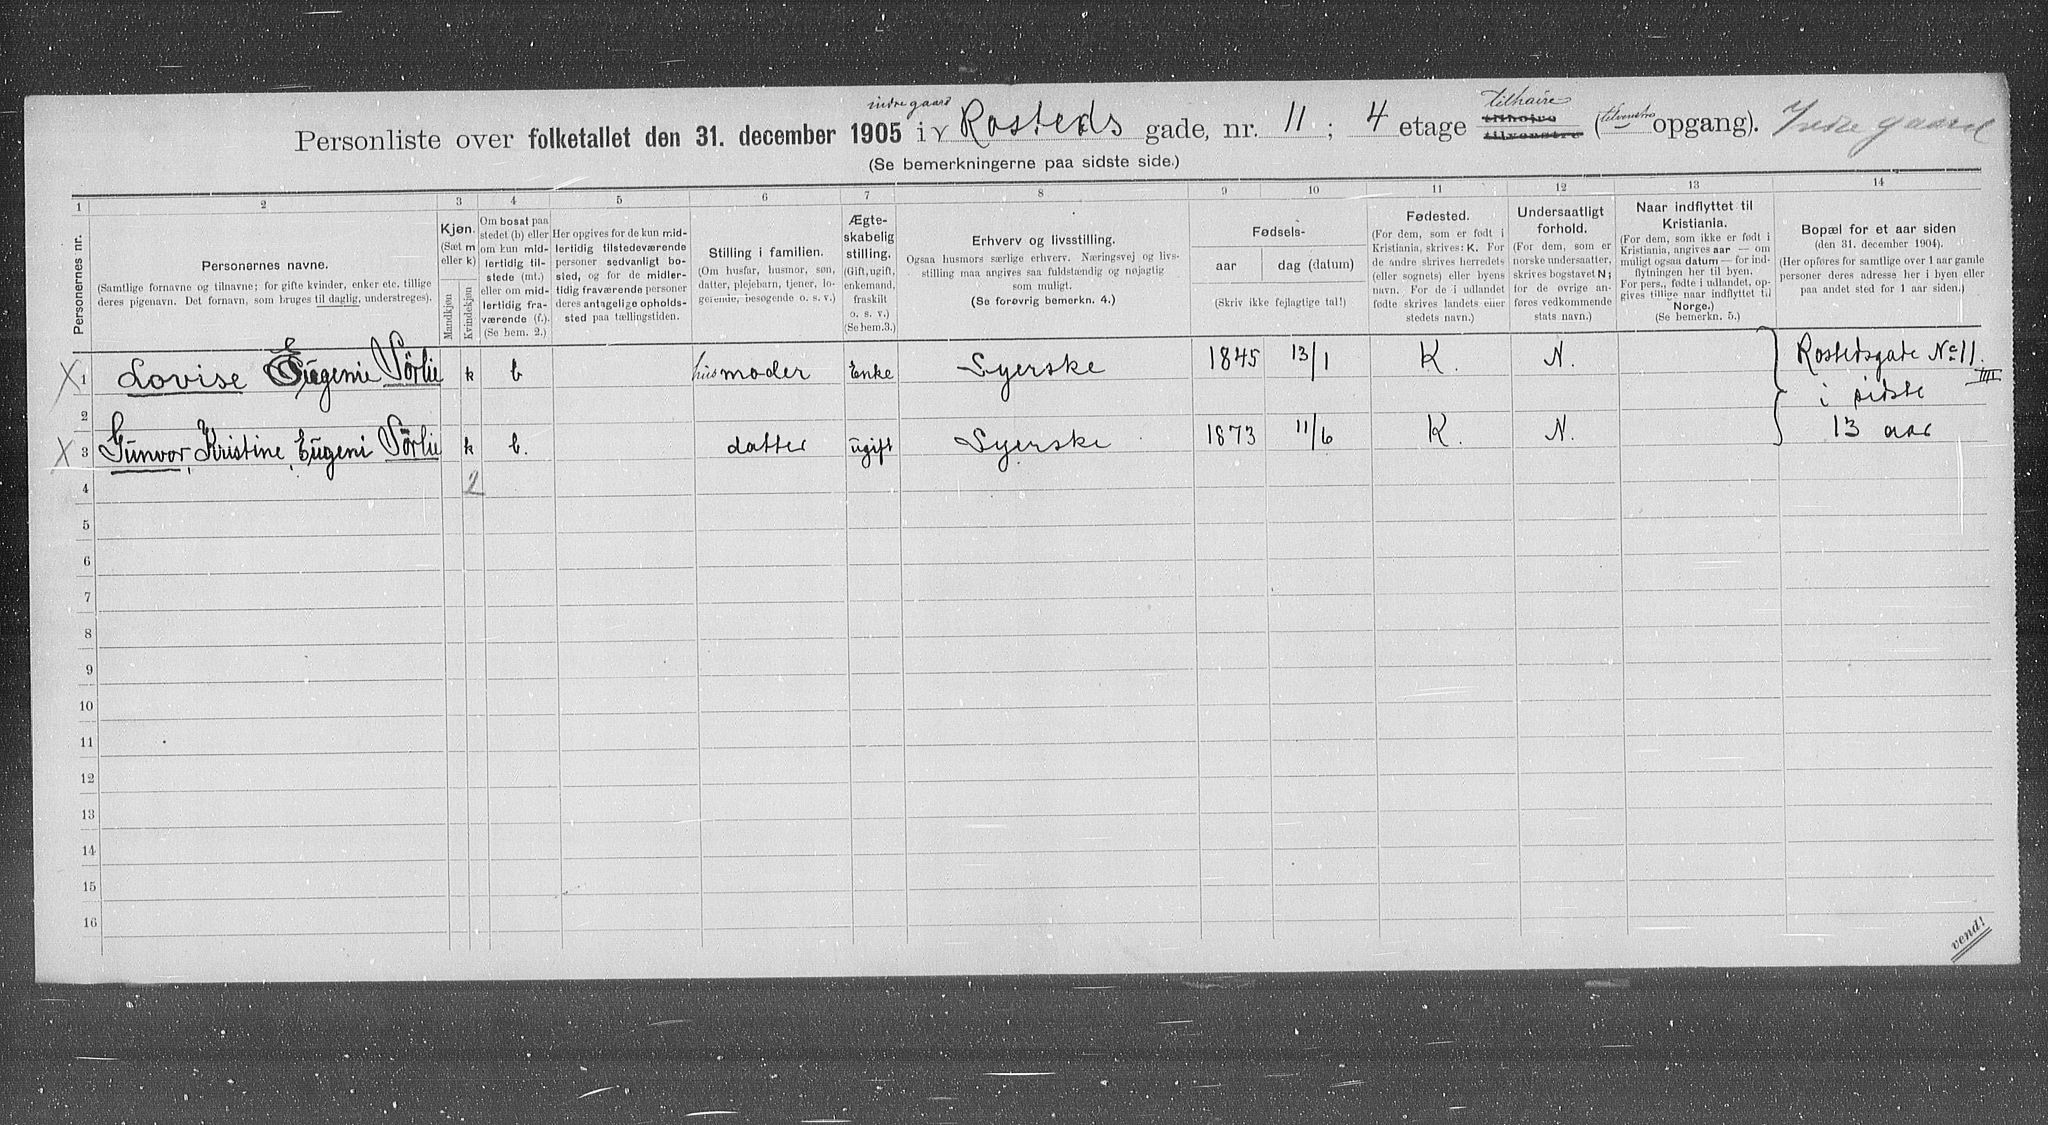 indregaard
Personliste over folketallet den 31. december 1905 i Rosteds gade, nr. 11; 4 etage tilhøire (tilvenstre opgang). Indre gaard
(Se bemerkningerne paa sidste side.)
1 2 3 4 5 6 7 8 9 10 11 12 13 14
Personernes nr.
Personernes navne.
(Samtlige fornavne og tilnavne; for gifte kvinder, enker etc. tillige
deres pigenavn. Det fornavn, som bruges til daglig, understreges).
Kjøn.
(Sæt m
eller k)
Mandkjøn
Kvindekjøn
Om bosat paa
stedet (b) eller
om kun mid-
lertidig til-
stede (mt.)
eller om mid-
lertidig fra-
værende (f.).
(Se bem. 2.)
Her opgives for de kun mid-
lertidig tilstedeværende
personer sedvanligt bo-
sted, og for de midler-
tidig fraværende personer
deres antagelige opholds-
sted paa tællingstiden.
Stilling i familien.
(Om husfar, husmor, søn,
datter, plejebarn, tjener, lo-
gerende, besøgende o. s. v.)
Ægte-
skabelig
stilling.
(Gift, ugift,
enkemand,
fraskilt
o. s. v.)
(Se bem. 3.)
Erhverv og livsstilling.
Ogsaa husmors særlige erhverv. Næringsvej og livs-
stilling maa angives saa fuldstændig og nøjagtig
som muligt.
(Se forøvrig bemerkn. 4.)
Fødsels-
aar dag (datum)
(Skriv ikke fejlagtige tal!)
Fødested.
(For dem, som er født i
Kristiania, skrives: K. For
de andre skrives herredets
(eller sognets) eller byens
navn. For de i udlandet
fødte skrives landets eller
stedets navn.)
Undersaatligt
forhold.
(For dem, som er
norske undersaatter,
skrives bogstavet N;
for de øvrige an-
føres vedkommende
stats navn.)
Naar indflyttet til
Kristiania.
(For dem, som ikke er født i
Kristiania, angives aar — om
muligt ogsaa datum — for ind-
flytningen her til byen.
For pers., fødte i udlandet, op-
gives tillige naar indflyttet til
Norge.)
(Se bemerkn. 5.)
Bopæl for et aar siden
(den 31. december 1904).
(Her opføres for samtlige over 1 aar gamle
personer deres adresse her i byen eller
paa andet sted for 1 aar siden.)
X 1 Lovise Eugenie Sörlie k b husmoder Enke Syerske 1845 13/1 K. N. Rostedsgade No 11 IIII
i sidste
2
X 3 Gunvor, Kristine, Eugeni Sörlie k b. datter ugift Syerske 1873 11/6 K. N. 13 aar
4 2
5
6
7
8
9
10
11
12
13
14
15
16
vend!